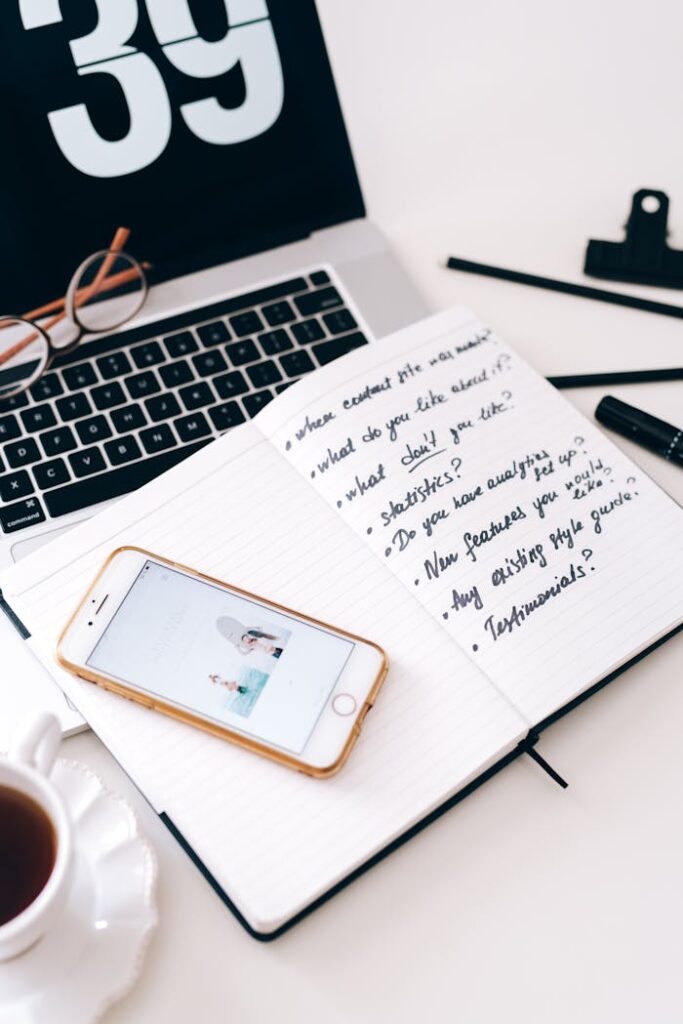 39
command
• when content site was made?
• what do you like about it?
• what don't you like?
• statistics?
• Do you have analytics set up?
• New features you would like?
• Any existing style guide?
• Testimonials?